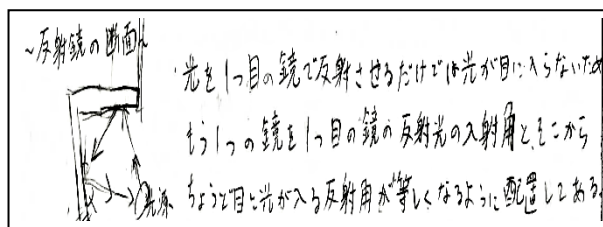 ～反射鏡の断面～
光を1つ目の鏡で反射させるだけでは光が目に入らないため
もう1つの鏡を1つ目の鏡の反射光の入射角と、そこから
ちょうど目に光が入る反射角が等しくなるように配置してある。
光源